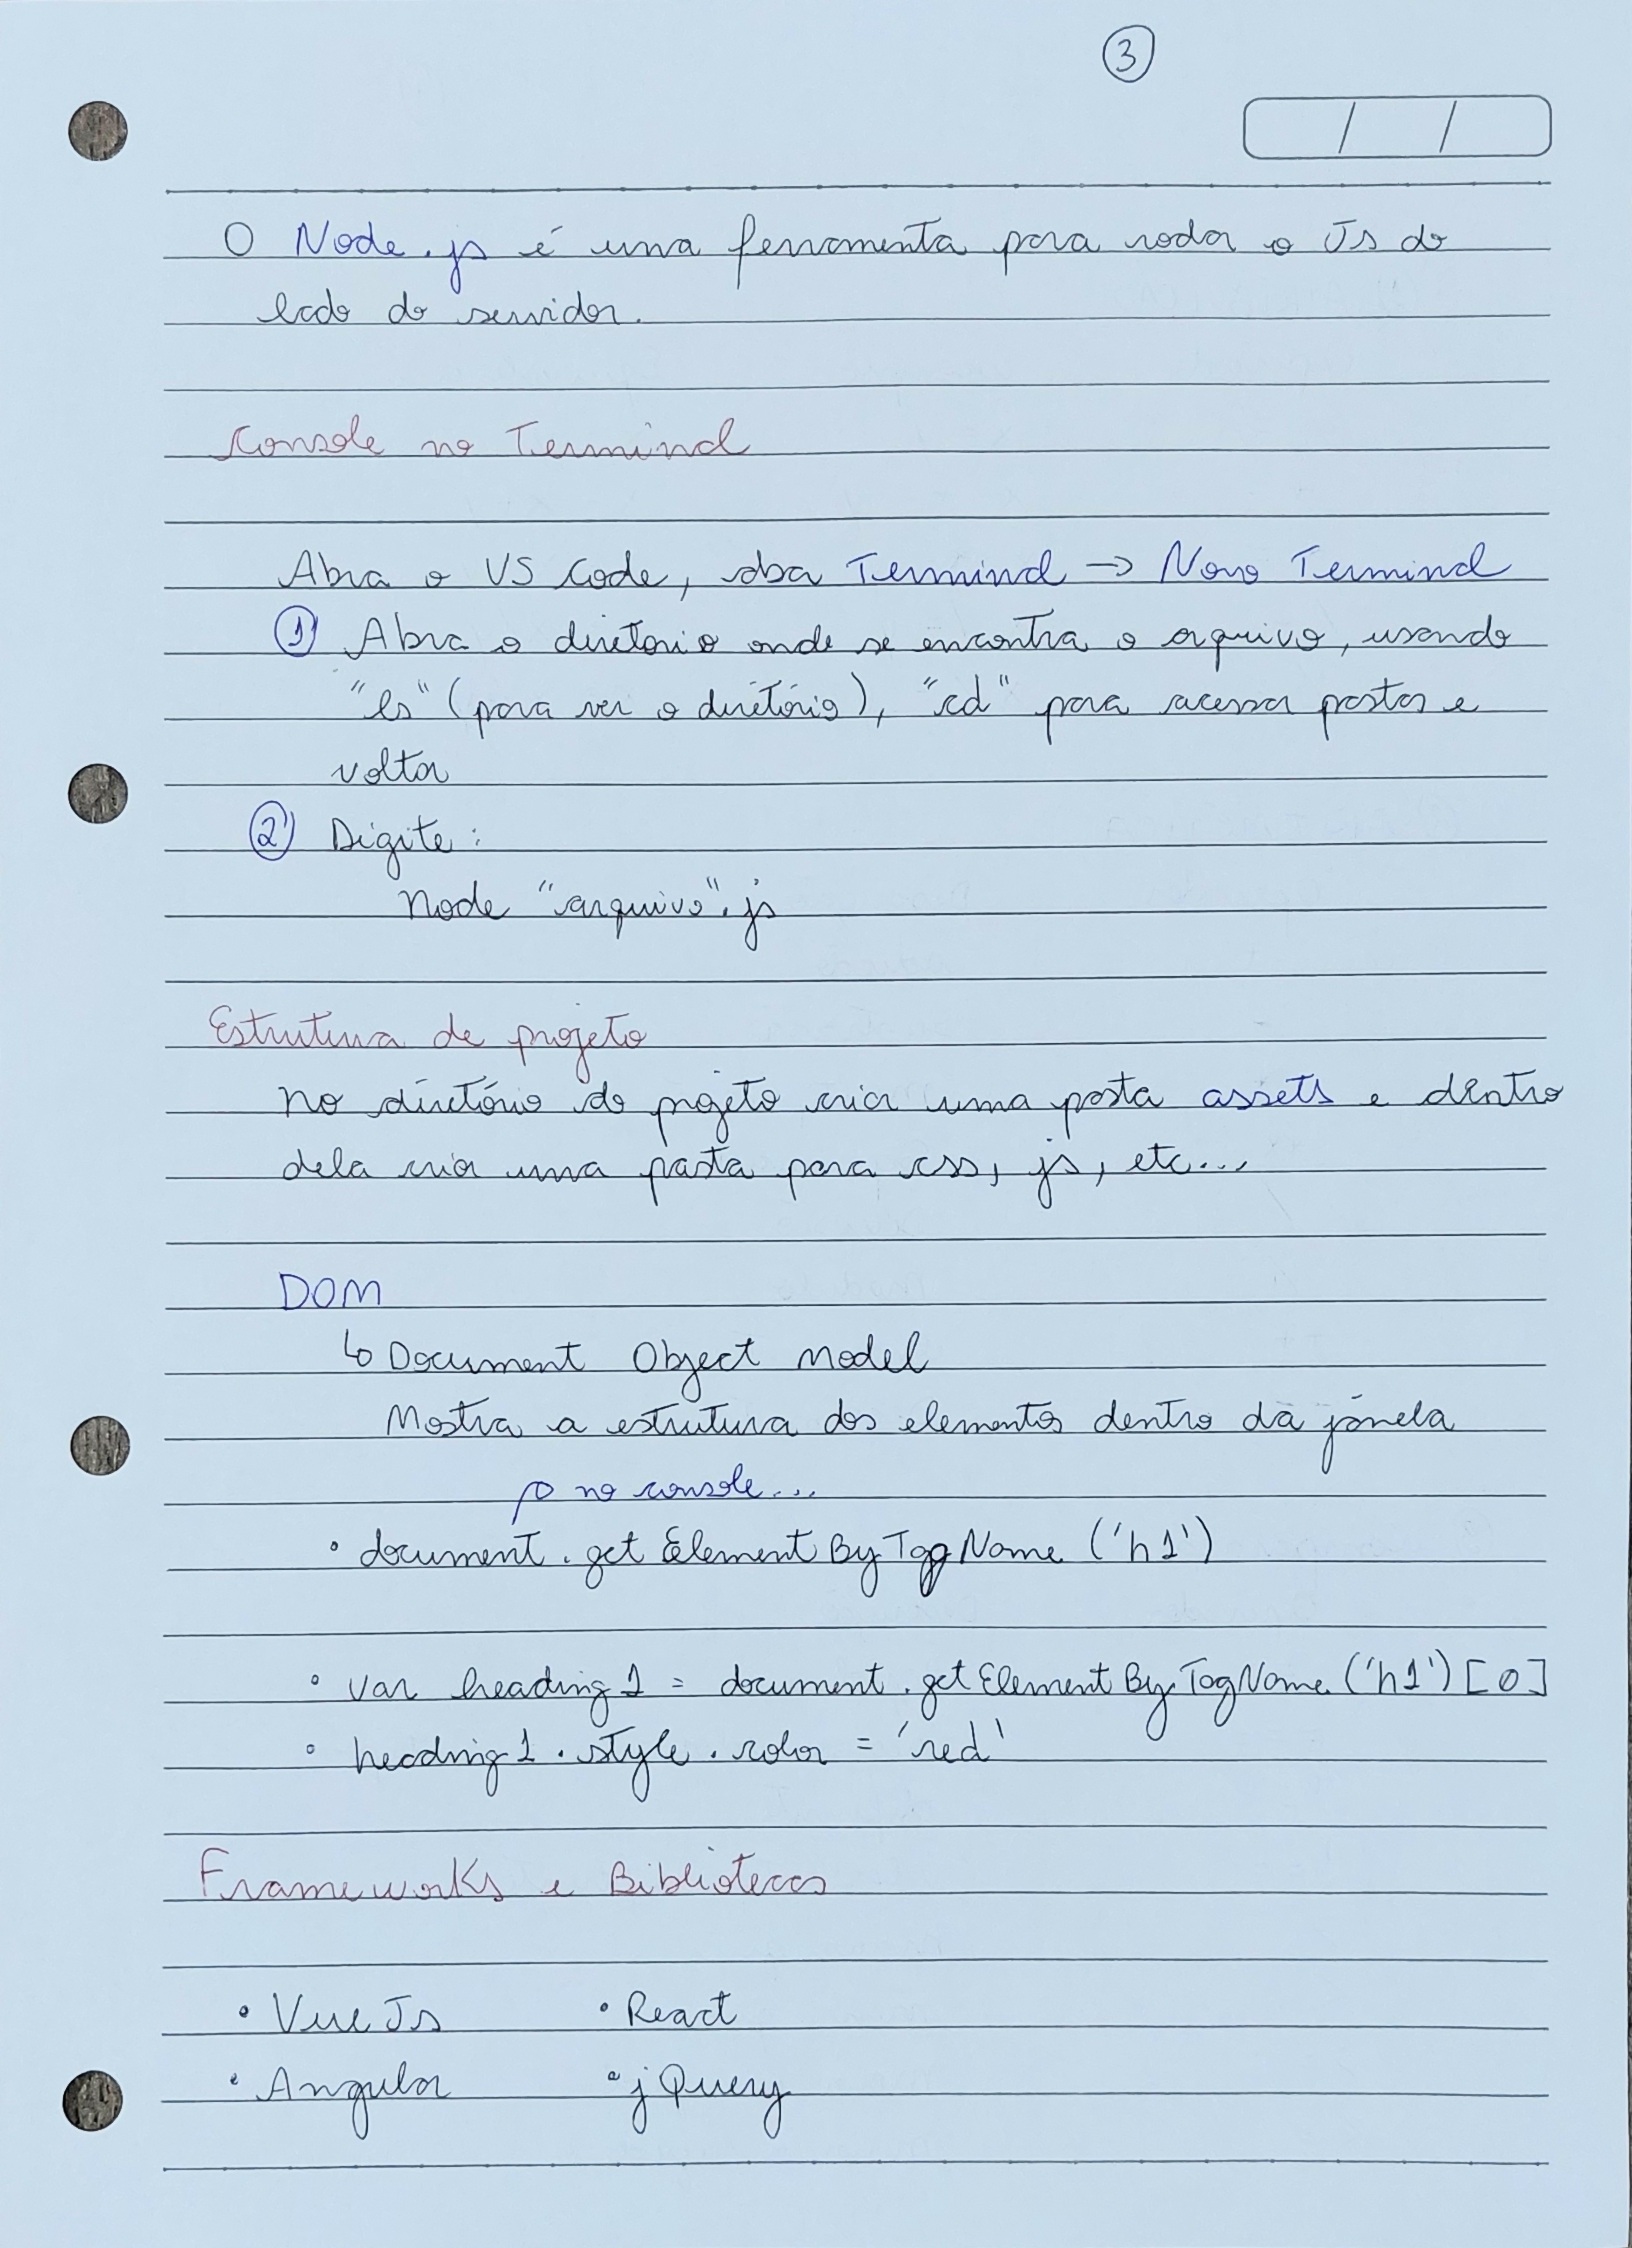 3
/ /
O Node.js é uma ferramenta para rodar o Js do
lado do servidor.
Console no Terminal
Abra o VS Code, aba Terminal → Novo Terminal
1 Abra o diretorio onde se encontra o arquivo, usando
"ls" (para ver o diretório), "cd" para acessar pastas e
voltar
2 Digite:
Node "arquivo".js
Estrutura de projeto
No diretório do projeto criar uma pasta assets e dentro
dela criar uma pasta para css, js, etc...
DOM
↳ Document Object Model
Mostra a estrutura dos elementos dentro da janela
↱ no console...
• document.getElementByTagName('h1')
• var heading1 = document.getElementByTagName('h1')[0]
• heading1.style.color = 'red'
Frameworks e Bibliotecas
• VueJs • React
• Angular • jQuery